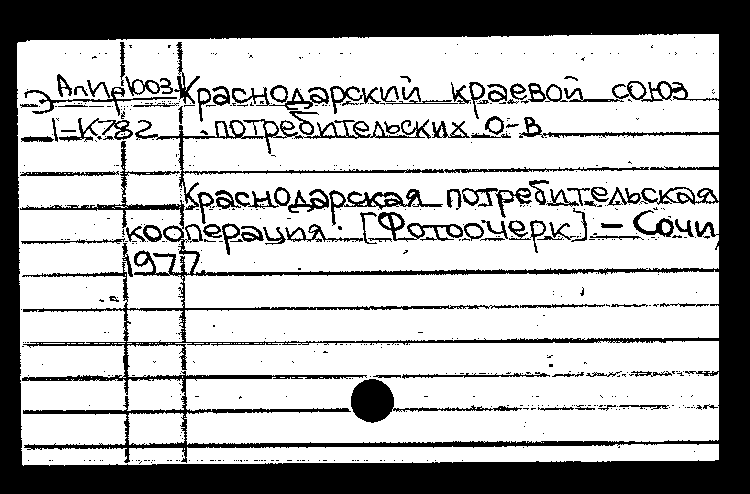 АлИр1003 Краснодарский краевой союз
1-К782 потребительских о-в
Краснодарская потребительская
кооперация. [Фотоочерк]. - Сочи,
1977.